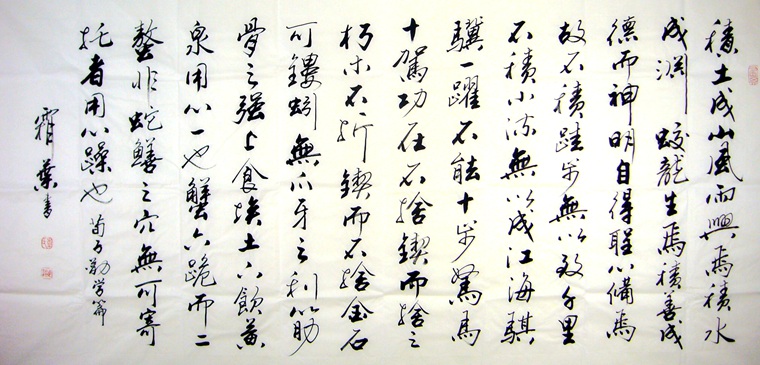 積土成山風雨興焉積水
成淵蛟龍生焉積善成
德而神明自得聖心備焉
故不積跬步無以致千里
不積小流無以成江海騏
驥一躍不能十步駑馬
十駕功在不捨鍥而捨之
朽木不折鍥而不捨金石
可鏤蚓無爪牙之利筋
骨之强上食埃土下飲黃
泉用心一也蟹六跪而二
螯非蛇鱔之穴無可寄
托者用心躁也 荀子勸学篇
霜葉書